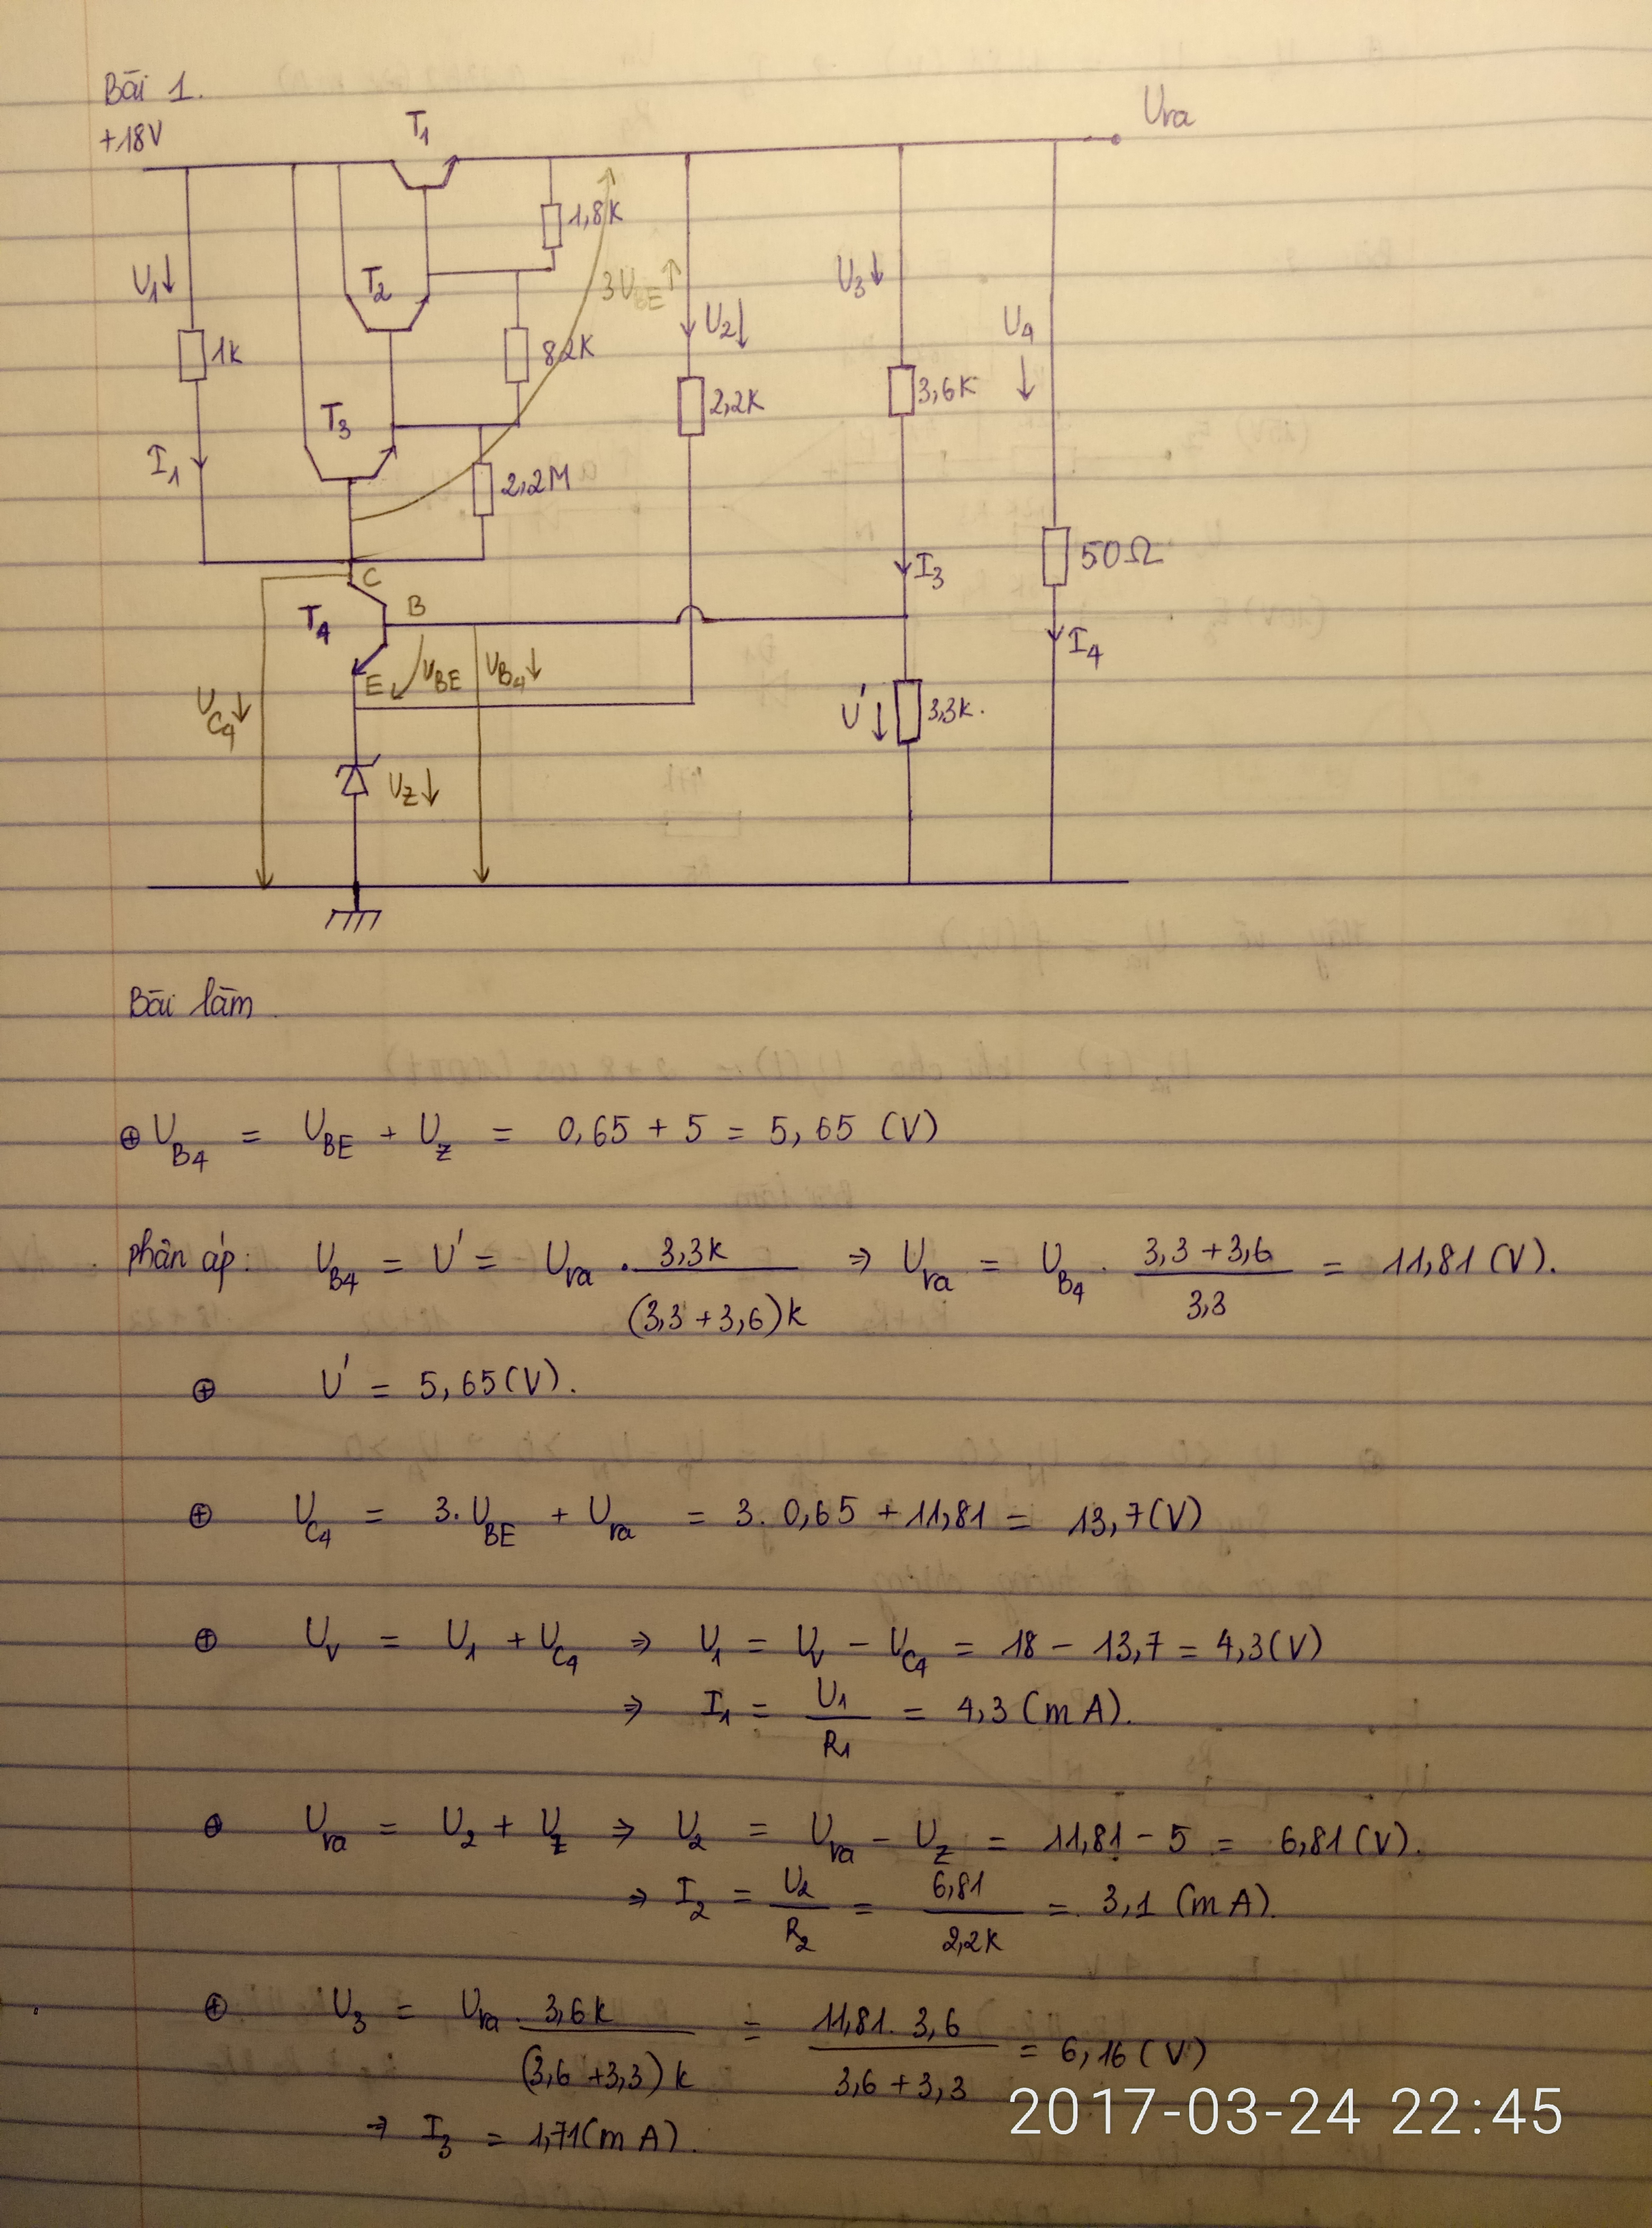 Bài 1.
+18V
T₁
Ura
1,8K
U₁↓
T₂
3UBE↑
U₃↓
U₂↓
U₄
↓
1K
82K
2,2K
3,6K
T₃
I₁
2,2M
I₃
50Ω
C
T₄
B
I₄
E
UBE
UB4↓
UC4↓
U'↓
3,3K.
UZ↓
Bài làm
⊕ UB4 = UBE + Uz = 0,65 + 5 = 5,65 (V)
phân áp: UB4 = U' = Ura . 3,3K / (3,3 + 3,6)K ⇒ Ura = UB4 . (3,3 + 3,6) / 3,3 = 11,81 (V).
⊕ U' = 5,65 (V).
⊕ UC4 = 3.UBE + Ura = 3. 0,65 + 11,81 = 13,7 (V)
⊕ UV = U₁ + UC4 ⇒ U₁ = UV - UC4 = 18 - 13,7 = 4,3 (V)
⇒ I₁ = U₁ / R₁ = 4,3 (mA).
⊕ Ura = U₂ + Uz ⇒ U₂ = Ura - Uz = 11,81 - 5 = 6,81 (V).
⇒ I₂ = U₂ / R₂ = 6,81 / 2,2K = 3,1 (mA).
⊕ U₃ = Ura . 3,6K / (3,6 + 3,3)K = 11,81. 3,6 / 3,6 + 3,3 = 6,16 (V)
⇒ I₃ = 1,71 (mA).
2017-03-24 22:45